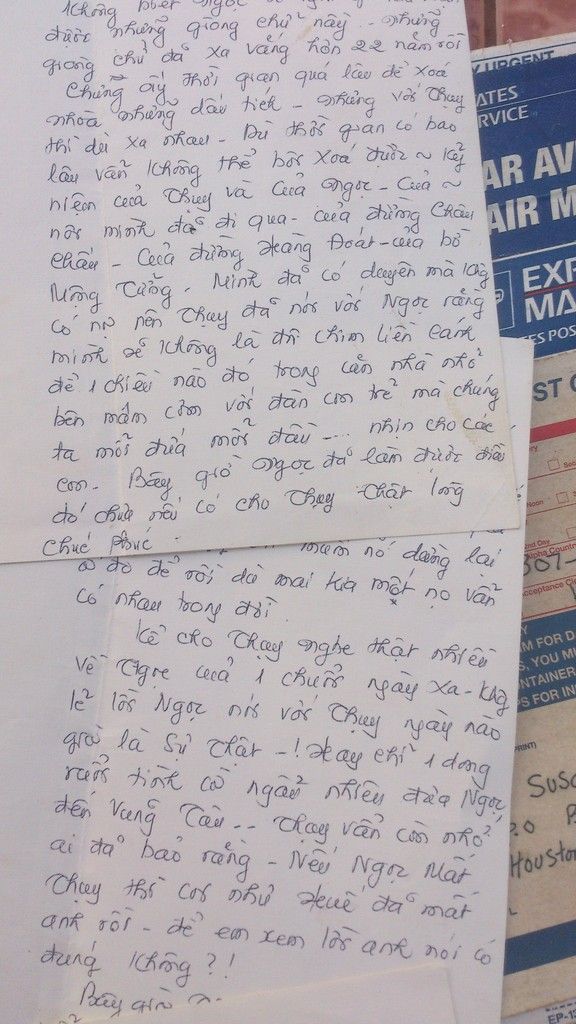 Không biết Ngọc
được những giòng chữ này.. những
giòng chữ đã xa vắng hơn 22 năm rồi
Chừng ấy thời gian quá lâu để xoá
nhoà những dấu tích - nhưng với Thụy
thì dù xa nhau - Dù thời gian có bao
lâu vẫn không thể bôi xoá được ~ kỷ
niệm của Thụy và của Ngọc - Của ~
nơi mình đã đi qua - của đường Châu
- Của đường - của bờ
Minh đã có duyên mà không
có nợ nên Thụy đã nói với Ngọc rằng
mình sẽ không là đôi chim liền cánh
để 1 chiều nào đó trong căn nhà nhỏ
bên mâm cơm với đàn con trẻ mà chúng
ta mỗi đứa mỗi đầu .... nhịn cho các
con - Bây giờ Ngọc đã làm được điều
đó chưa nếu có cho Thụy thật lòng
chúc phúc
đó để rồi dù mai kia một nọ vẫn
có nhau trong đời.
Kể cho Thụy nghe thật nhiều
về Ngọc của 1 chuỗi ngày xa - không
lẽ lời Ngọc nói với Thụy ngày nào
giờ là Sự Thật - ! Hay chỉ 1 dòng
tình cờ ngẫu nhiên đưa Ngọc
đến Vũng Tàu .. Thụy vẫn còn nhớ
ai đã bảo rằng - Nếu Ngọc Mất
Thụy thì coi như Huế đã mất
anh rồi - để em xem lời anh nói có
đúng không ? !
Bây giờ
URGENT
ATES
RVICE
AIR M
EXP
MA
ES POS
ST
Noon
nd Day
Acceptance
M FOR D
S, YOU MU
NTAINER
PS FOR IN
PRINT)
Houston
EP-13